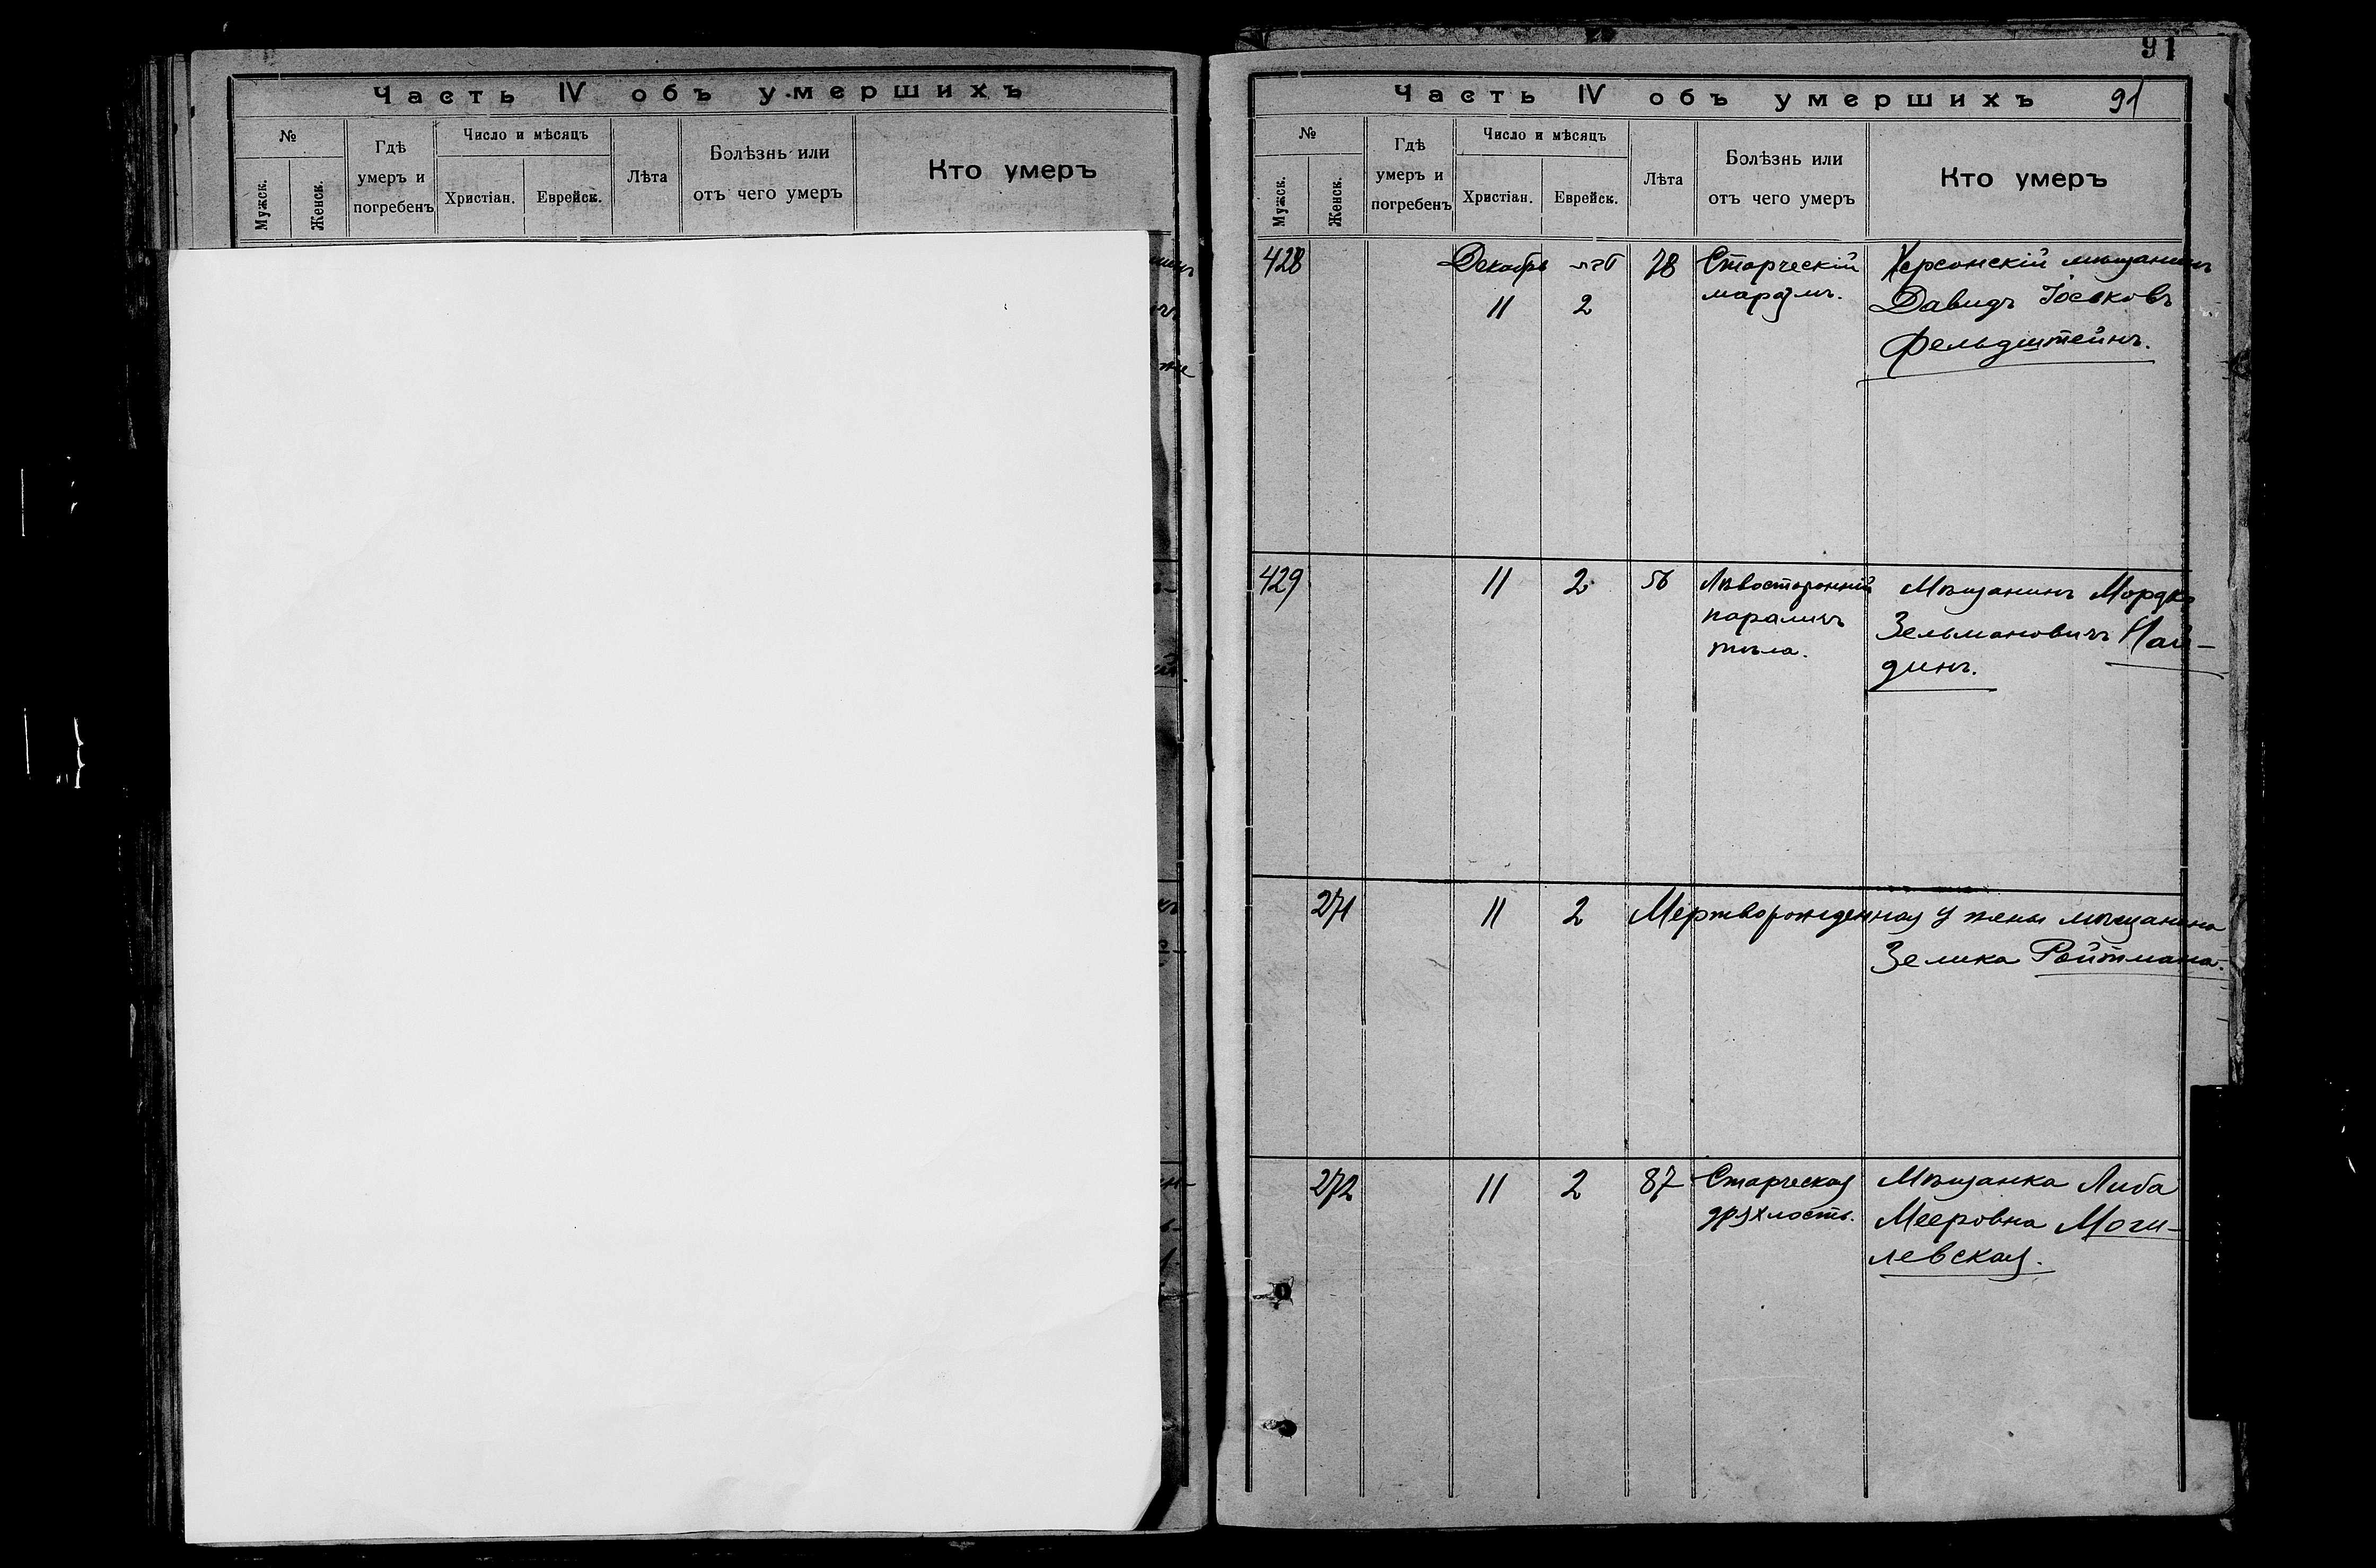 Часть IV объ умершихъ
№
Мужск.
Женск.
Гдѣ
умеръ и
погребенъ
Число и мѣсяцъ
Христіан.
Еврейск.
Лѣта
Болѣзнь или
отъ чего умеръ
Кто умеръ
91
Часть IV объ умершихъ 91
№
Мужск.
Женск.
Гдѣ
умеръ и
погребенъ
Число и мѣсяцъ
Христіан.
Еврейск.
Лѣта
Болѣзнь или
отъ чего умеръ
Кто умеръ
428 Декабрь טבת 78 Старческій Херсонскій мѣщанинъ
11 2 маразмъ. Давидъ Іосековъ
Фельдштейнъ.
429 11 2 56 Лѣвосторонній Мѣщанинъ Мордко
параличъ Зельмановичъ Най-
тѣла. динъ.
271 11 2 Мертворожденная у жены мѣщанина
Зелика Ройтмана.
272 11 2 87 Старческая Мѣщанка Либа
дряхлость. Мееровна Моги-
левская.